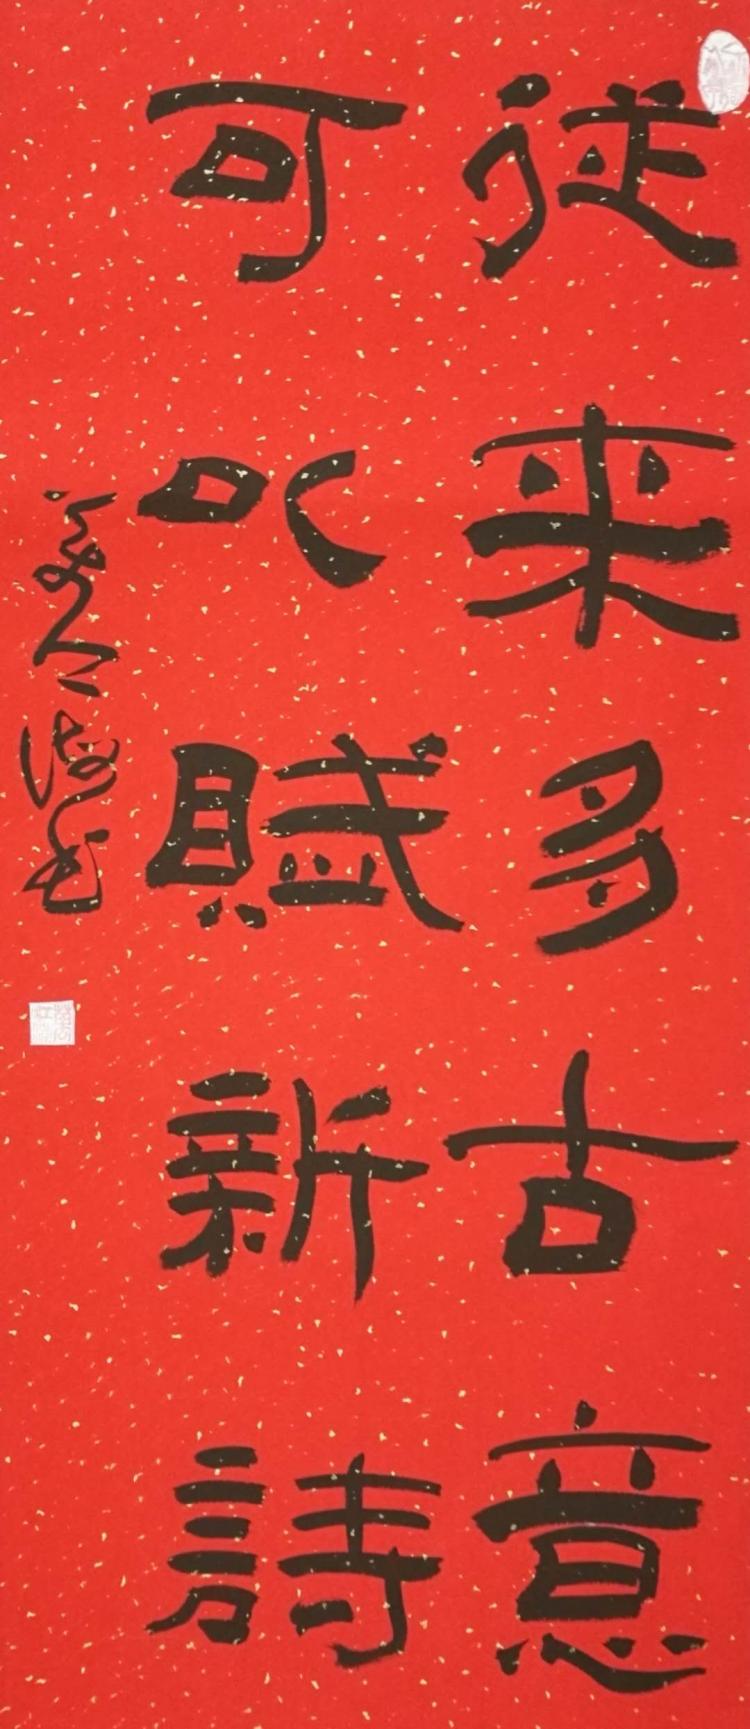 従来多古意
可以賦新詩